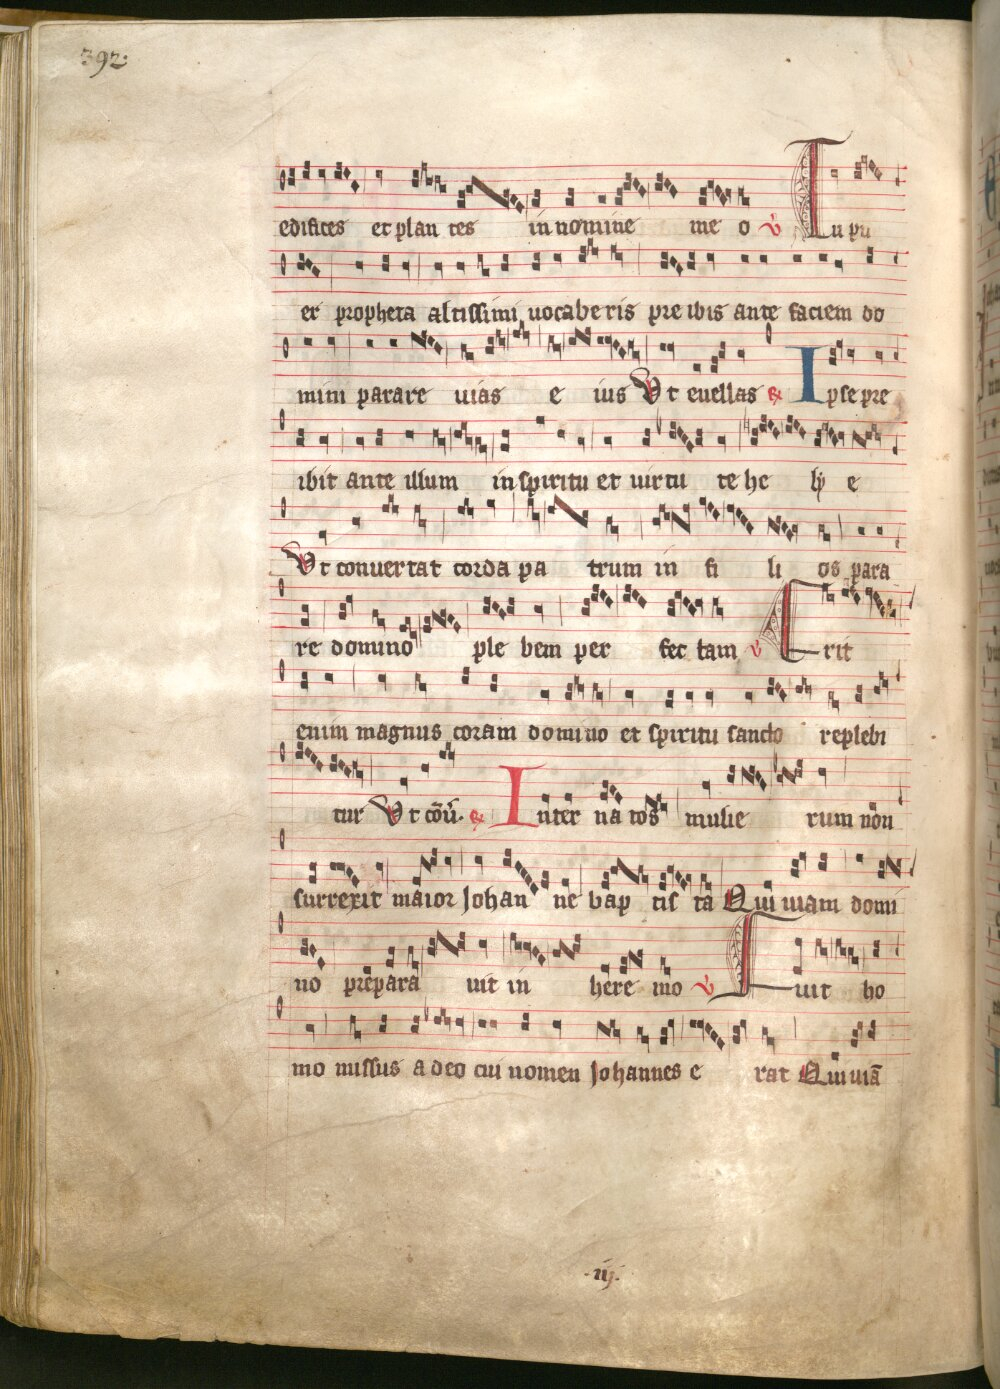 392.
edifices et plan tes in nomine me o v Tu pu
er propheta altissimi uocabe ris pre ibis ante faciem do
mini parare uias e ius Vt euellas R Ipse pre
ibit ante illum in spiritu et uirtu te he ly e
Vt conuertat corda pa trum in fi li os para
re domino ple bem per fec tam v Erit
enim magnus coram domino et spiritu sancto replebi
tur Vt cōu. R Inter na tos mulie rum non
surrexit maior Johan nes bap tis ta Qui uiam domi
no prepara uit in here mo v Fuit ho
mo missus a deo cui nomen Johannes e rat Qui uiā
.iij.